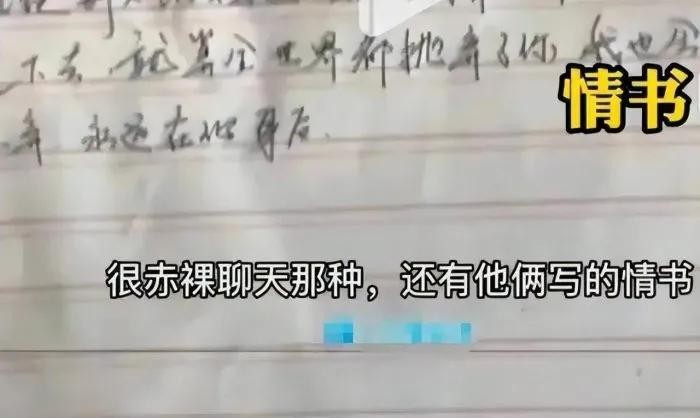 下去,就算全世界都抛弃了你,我也
弃 永远在你身后.
情书
很赤裸聊天那种，还有他俩写的情书